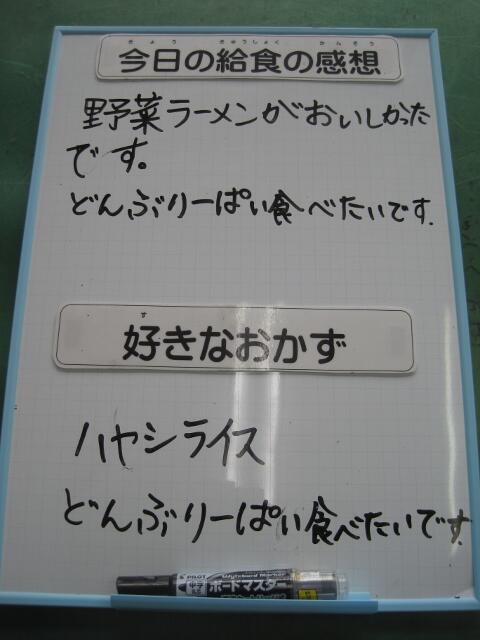 きょう きゅうしょく かんそう
今日の給食の感想
野菜ラーメンがおいしかった
です。
どんぶりーぱい食べたいです.
す
好きなおかず
ハヤシライス
どんぶりーぱい食べたいです
PILOT Whiteboard Marker
ボードマスター